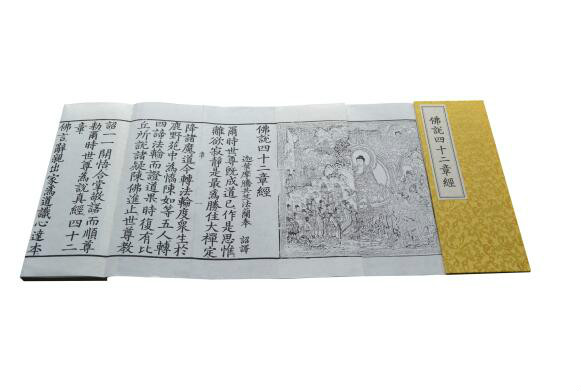 佛說四十二章經
佛說四十二章經
迦葉摩騰共竺法蘭奉 詔譯
爾時世尊既成道已作是思惟
離欲寂靜是最為勝住大禪定
降諸魔道今轉法輪度衆生於
鹿野苑中為憍陳如等五人轉
四諦法輪而證道果時復有比
丘所說諸疑陳佛進止世尊教
詔一一開悟合掌敬諾而順尊
勑爾時世尊為說真經四十二
章
佛言辭親出家為道識心達本